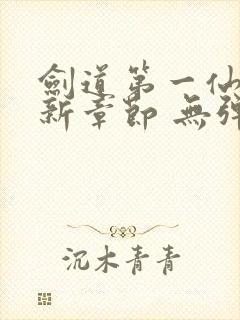 劍道第一仙
新章節 無彈
沉木青青